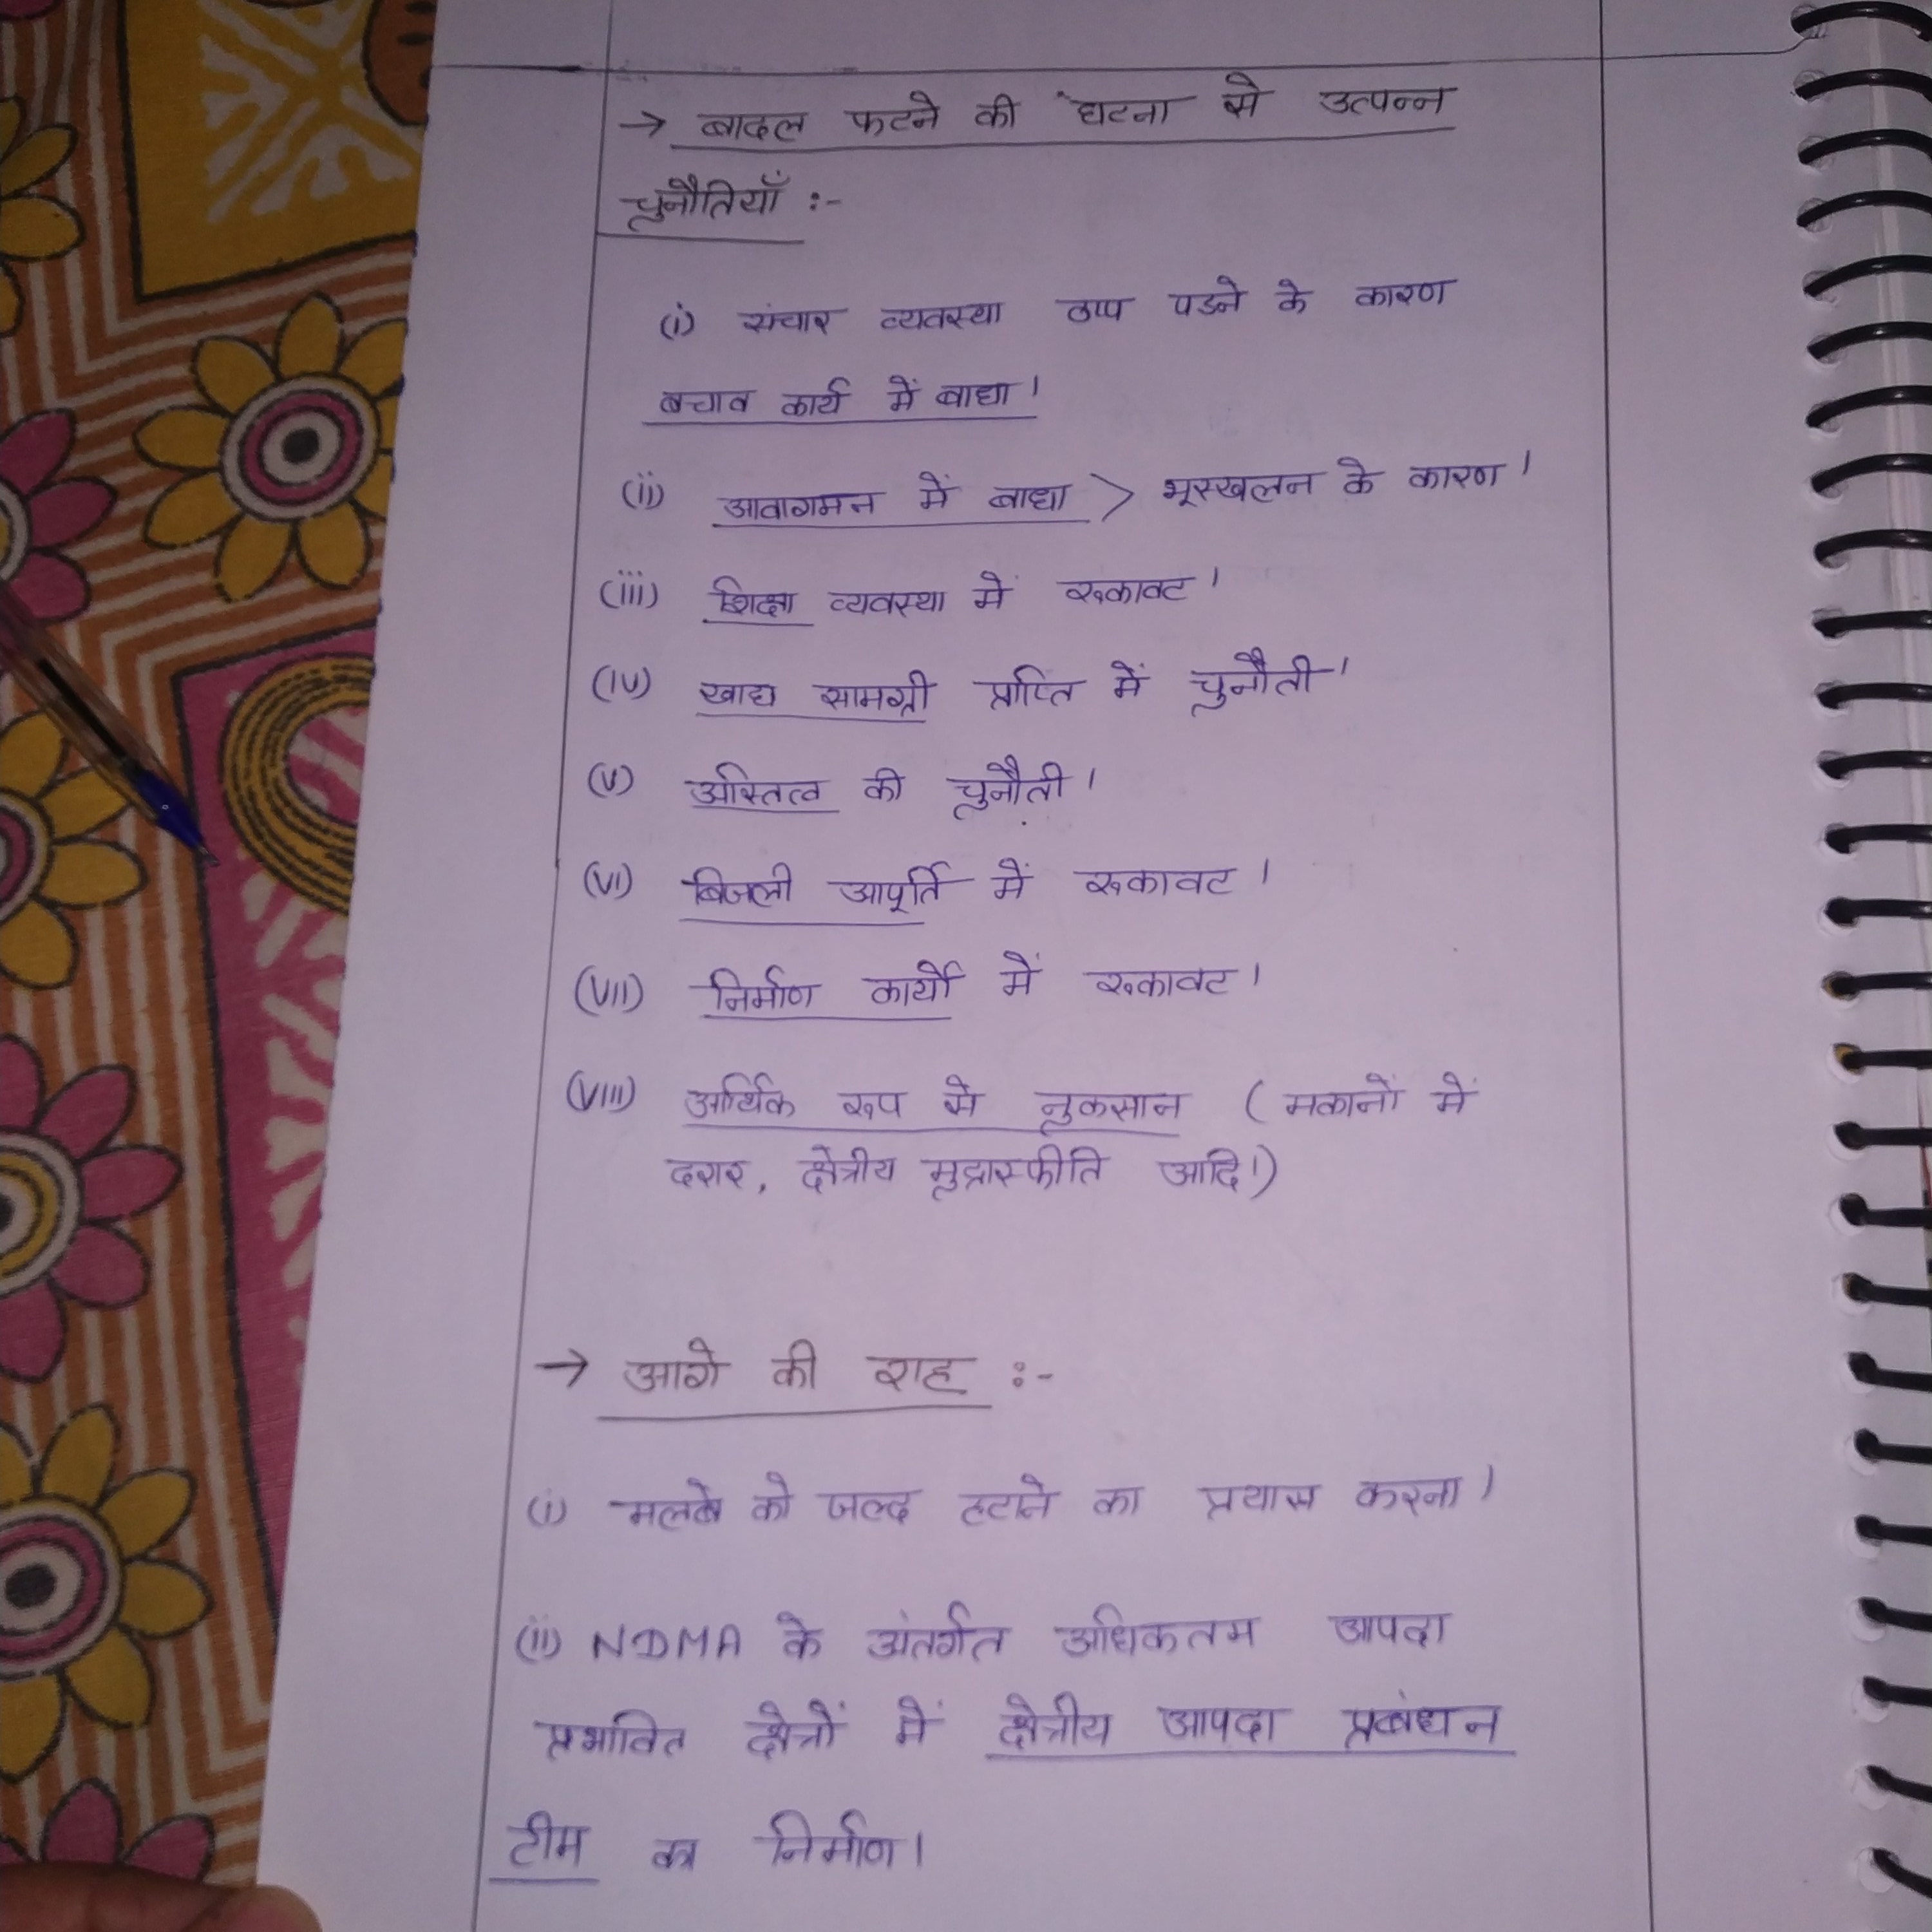 → बादल फटने की घटना से उत्पन्न
चुनौतियाँ :-
(i) संचार व्यवस्था ठप्प पडने के कारण
बचाव कार्य में बाधा।
(ii) आवागमन में बाधा > भूस्खलन के कारण।
(iii) शिक्षा व्यवस्था में रुकावट।
(iv) खाद्य सामग्री प्राप्ति में चुनौती।
(v) अस्तित्व की चुनौती।
(vi) बिजली आपूर्ति में रुकावट।
(vii) निर्माण कार्यों में रुकावट।
(viii) आर्थिक रूप से नुकसान (मकानों में
दरार, क्षेत्रीय मुद्रास्फीति आदि।)
→ आगे की राह :-
(i) मलबे को जल्द हटाने का प्रयास करना।
(ii) NDMA के अंतर्गत अधिकतम आपदा
प्रभावित क्षेत्रों में क्षेत्रीय आपदा प्रबंधन
टीम का निर्माण।